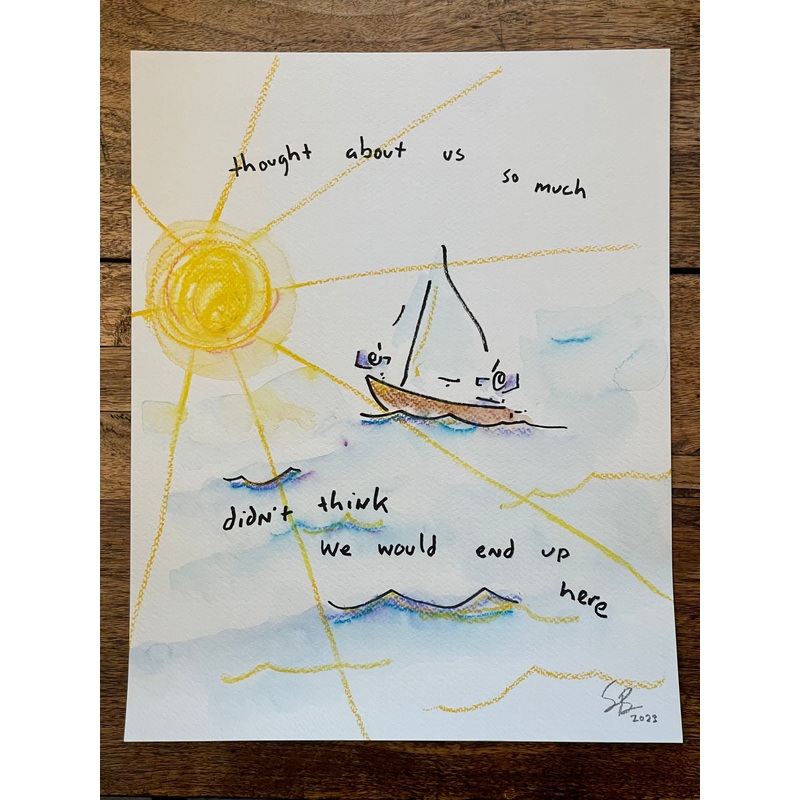 thought about us
so much
didn't think
we would end up
here
SB
2023